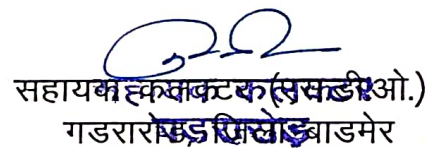 सहायक कलक्टर (एसडीओ.)
गडरारोड, जिला बाडमेर